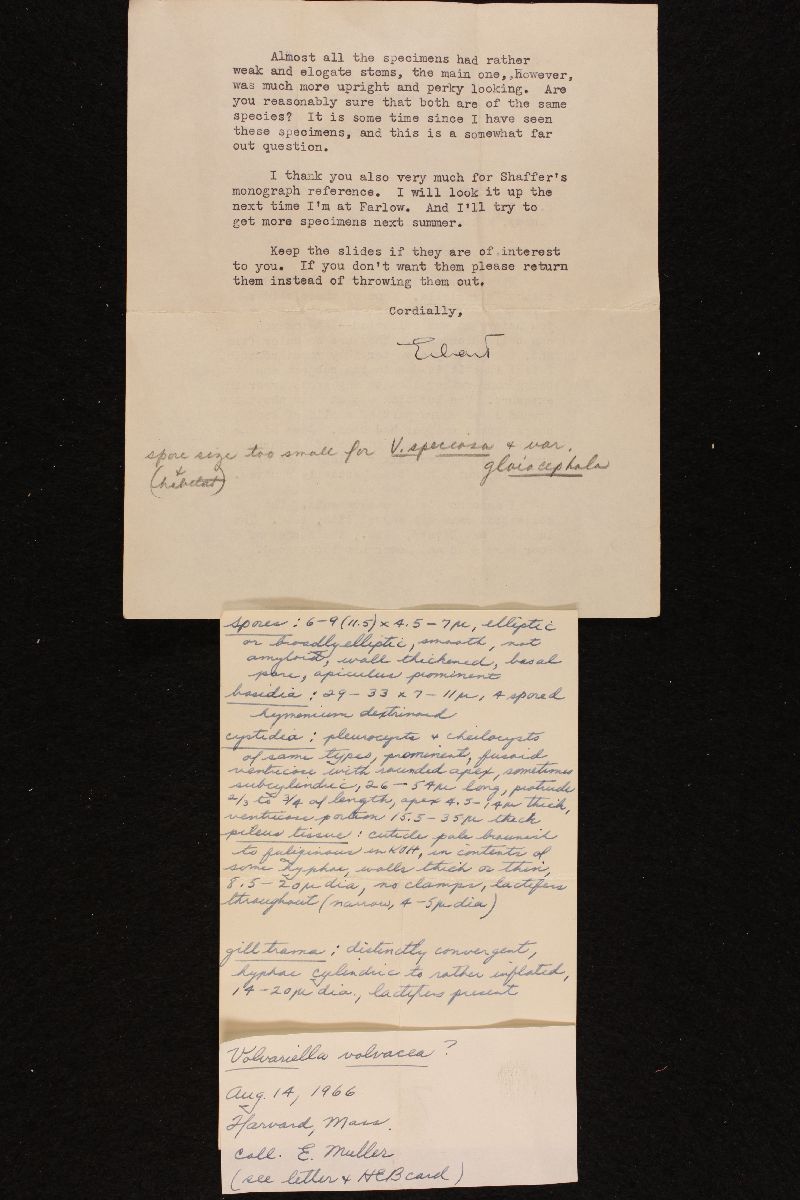 Almost all the specimens had rather
weak and elogate stems, the main one, however,
was much more upright and perky looking. Are
you reasonably sure that both are of the same
species? It is some time since I have seen
these specimens, and this is a somewhat far
out question.
I thank you also very much for Shaffer's
monograph reference. I will look it up the
next time I'm at Farlow. And I'll try to
get more specimens next summer.
Keep the slides if they are of interest
to you. If you don't want them please return
them instead of throwing them out.
Cordially,
spore size too small for V. speciosa & var.
gloiocephala
+
(habitat)
spores: 6-9(11.5) x 4.5-7µ, elliptic
or broadly elliptic, smooth, not
amyloid, wall thickened, basal
pore, apiculus prominent
basidia: 29-33 x 7-11µ, 4 spored
hymenium dextrinoid
cystidia: pleurocysts & cheilocysts
of same types, prominent, fusoid
ventricose with rounded apex, sometimes
subcylindric, 26-54µ long, protrude
2/3 to 3/4 of length, apex 4.5-14µ thick,
ventricose portion 15.5-35µ thick
pileus tissue: cuticle pale brownish
to fuliginous in KOH, in contents of
some hyphae, walls thick or thin,
8.5-20µ dia, no clamps, lactifers
throughout (narrow, 4-5µ dia)
gill trama: distinctly convergent,
hyphae cylindric to rather inflated,
14-20µ dia., lactifers present
Volvariella volvacea?
Aug. 14, 1966
Harvard, Mass.
coll. E. Muller
(see letter & HEB card)